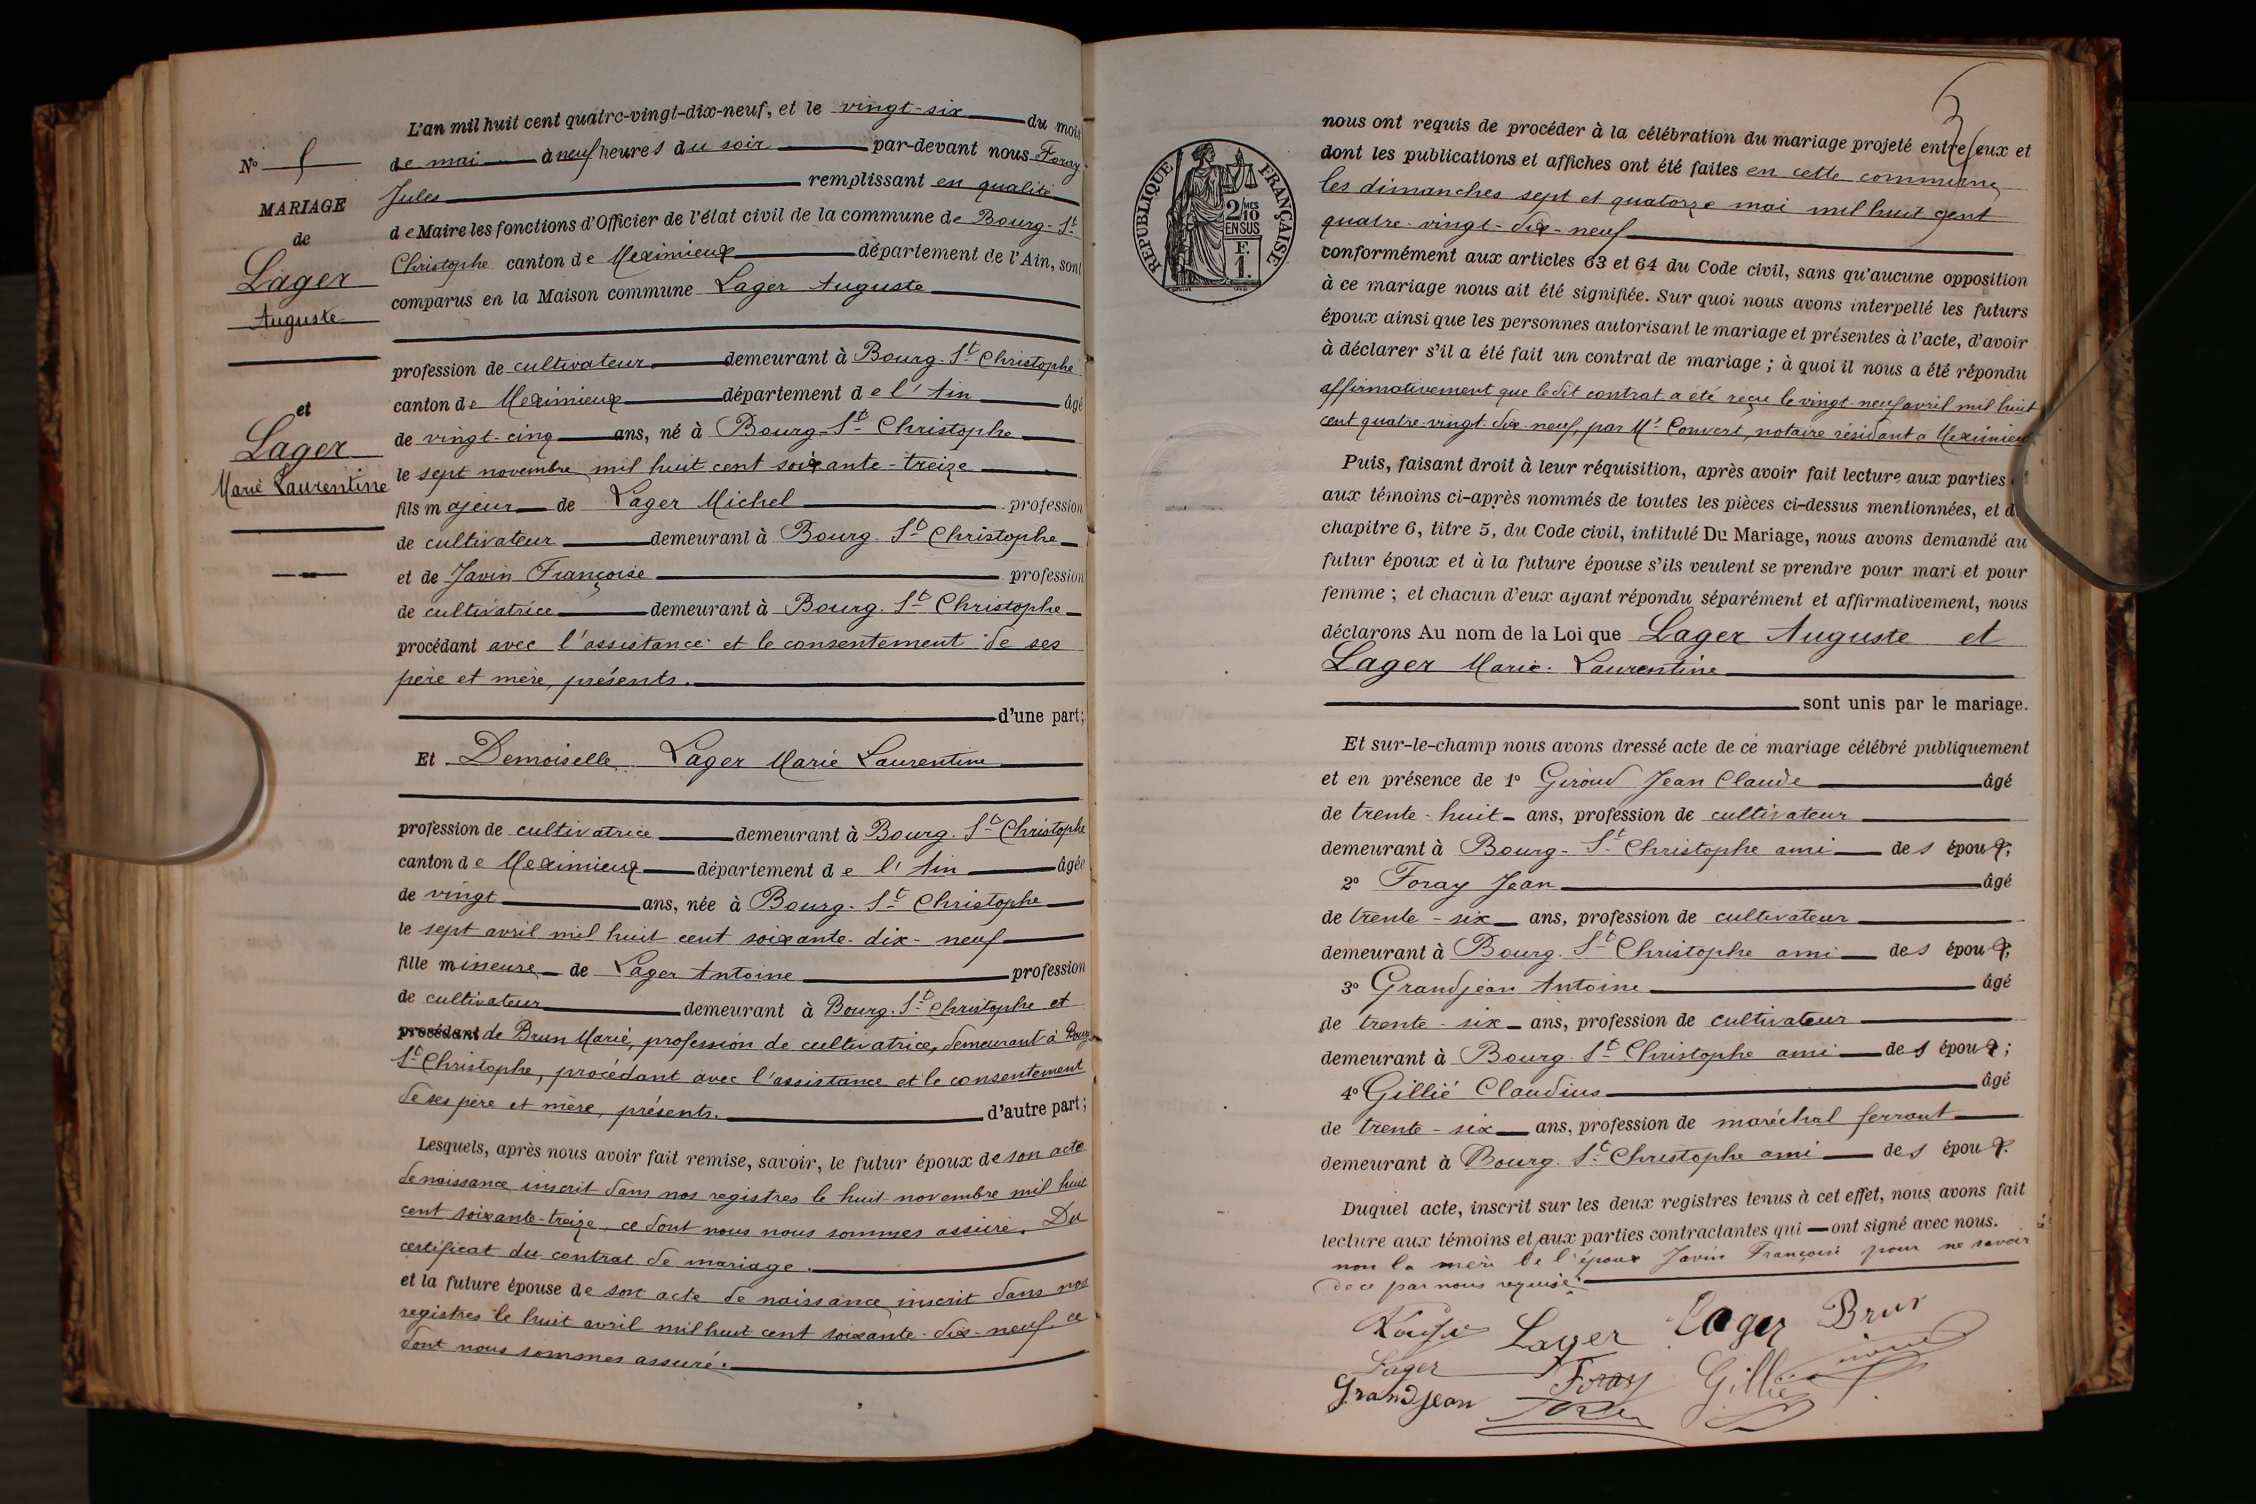 L'an mil huit cent quatre-vingt-dix-neuf, et le vingt-six du mois
de mai à neuf heures du soir par-devant nous Foray
Jules remplissant en qualité
de Maire les fonctions d'Officier de l'état civil de la commune de Bourg-St
Christophe canton de Meximieux département de l'Ain, sont
comparus en la Maison commune Lager Auguste
profession de cultivateur demeurant à Bourg-St Christophe
canton de Meximieux département de l'Ain âgé
de vingt-cinq ans, né à Bourg-St Christophe
le sept novembre mil huit cent soixante-treize
fils majeur de Lager Michel profession
de cultivateur demeurant à Bourg-St Christophe
et de Javin Françoise profession
de cultivatrice demeurant à Bourg-St Christophe
procédant avec l'assistance et le consentement de ses
père et mère, présents.
d'une part;
Et Demoiselle Lager Marie Laurentine
profession de cultivatrice demeurant à Bourg-St Christophe
canton de Meximieux département de l'Ain âgée
de vingt ans, née à Bourg-St Christophe
le sept avril mil huit cent soixante-dix-neuf
fille mineure de Lager Antoine profession
de cultivateur demeurant à Bourg-St Christophe et
procédant de Brun Marie, profession de cultivatrice, demeurant à Bourg
St Christophe, procédant avec l'assistance et le consentement
de ses père et mère, présents. d'autre part;
Lesquels, après nous avoir fait remise, savoir, le futur époux de son acte
de naissance inscrit dans nos registres le huit novembre mil huit
cent soixante-treize, ce dont nous nous sommes assuré. Du
certificat du contrat de mariage.
et la future épouse de son acte de naissance inscrit dans nos
registres le huit avril mil huit cent soixante-dix-neuf ce
dont nous sommes assuré.
No
MARIAGE
de
Lager
Auguste
et
Lager
Marie Laurentine
RÉPUBLIQUE FRANÇAISE
2/MES
10
EN SUS
F.
1.
nous ont requis de procéder à la célébration du mariage projeté entre eux et
dont les publications et affiches ont été faites en cette commune
les dimanches sept et quatorze mai mil huit cent
quatre-vingt-dix-neuf
conformément aux articles 63 et 64 du Code civil, sans qu'aucune opposition
à ce mariage nous ait été signifiée. Sur quoi nous avons interpellé les futurs
époux ainsi que les personnes autorisant le mariage et présentes à l'acte, d'avoir
à déclarer s'il a été fait un contrat de mariage ; à quoi il nous a été répondu
affirmativement que le dit contrat a été reçu le vingt-neuf avril mil huit
cent quatre-vingt-dix-neuf, par Me Convert, notaire résidant à Meximieux
Puis, faisant droit à leur réquisition, après avoir fait lecture aux parties
aux témoins ci-après nommés de toutes les pièces ci-dessus mentionnées, et d
chapitre 6, titre 5, du Code civil, intitulé Du Mariage, nous avons demandé au
futur époux et à la future épouse s'ils veulent se prendre pour mari et pour
femme ; et chacun d'eux ayant répondu séparément et affirmativement, nous
déclarons Au nom de la Loi que Lager Auguste et
Lager Marie-Laurentine
sont unis par le mariage.
Et sur-le-champ nous avons dressé acte de ce mariage célébré publiquement
et en présence de 1° Giroud Jean Claude âgé
de trente-huit ans, profession de cultivateur
demeurant à Bourg-St Christophe ami des époux;
2° Foray Jean âgé
de trente-six ans, profession de cultivateur
demeurant à Bourg-St Christophe ami des époux;
3° Grandjean Antoine âgé
de trente-six ans, profession de cultivateur
demeurant à Bourg-St Christophe ami des époux;
4° Gillié Claudius âgé
de trente-six ans, profession de maréchal ferrant
demeurant à Bourg-St Christophe ami des époux.
Duquel acte, inscrit sur les deux registres tenus à cet effet, nous avons fait
lecture aux témoins et aux parties contractantes qui ont signé avec nous.
non la mère de l'époux Javin Françoise pour ne savoir
de ce par nous requise.
Lager Lager Brun
Lager Foray Gillié
Grandjean